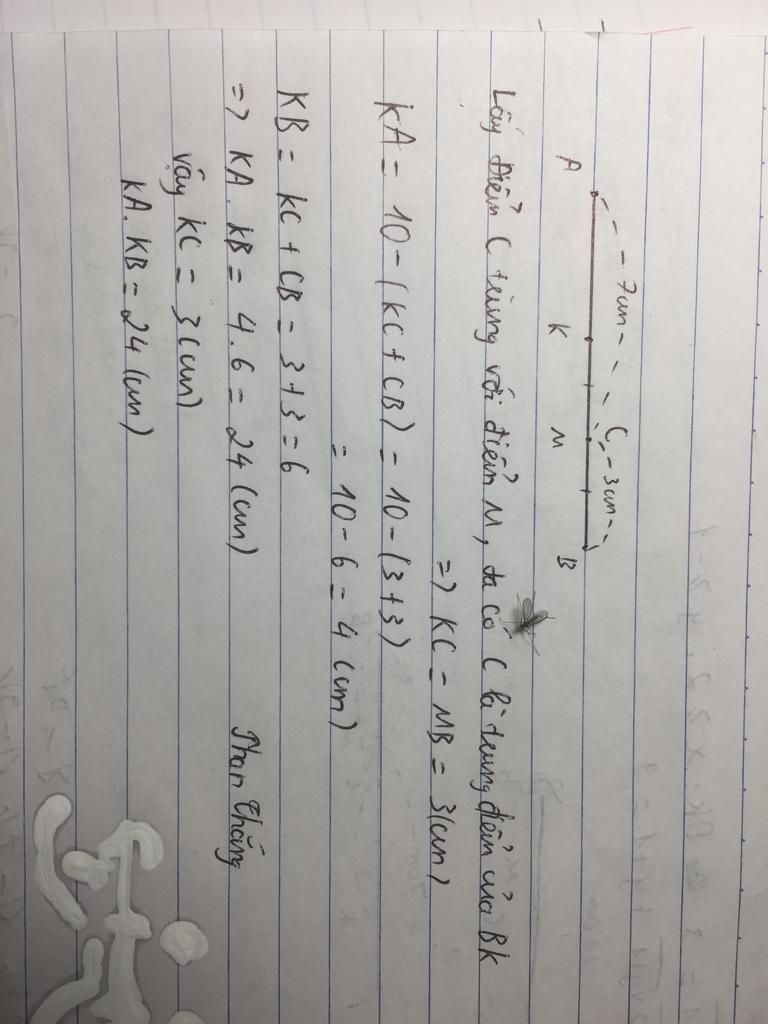 7cm 3cm
A K C M B
Lấy điểm C trùng với điểm M, ta có C là trung điểm của BK
=> KC = MB = 3(cm)
KA = 10 - (KC + CB) = 10 - (3+3)
= 10 - 6 = 4 (cm)
KB = KC + CB = 3 + 3 = 6
=> KA . KB = 4 . 6 = 24 (cm)
Phan Thắng
Vậy KC = 3(cm)
KA . KB = 24 (cm)